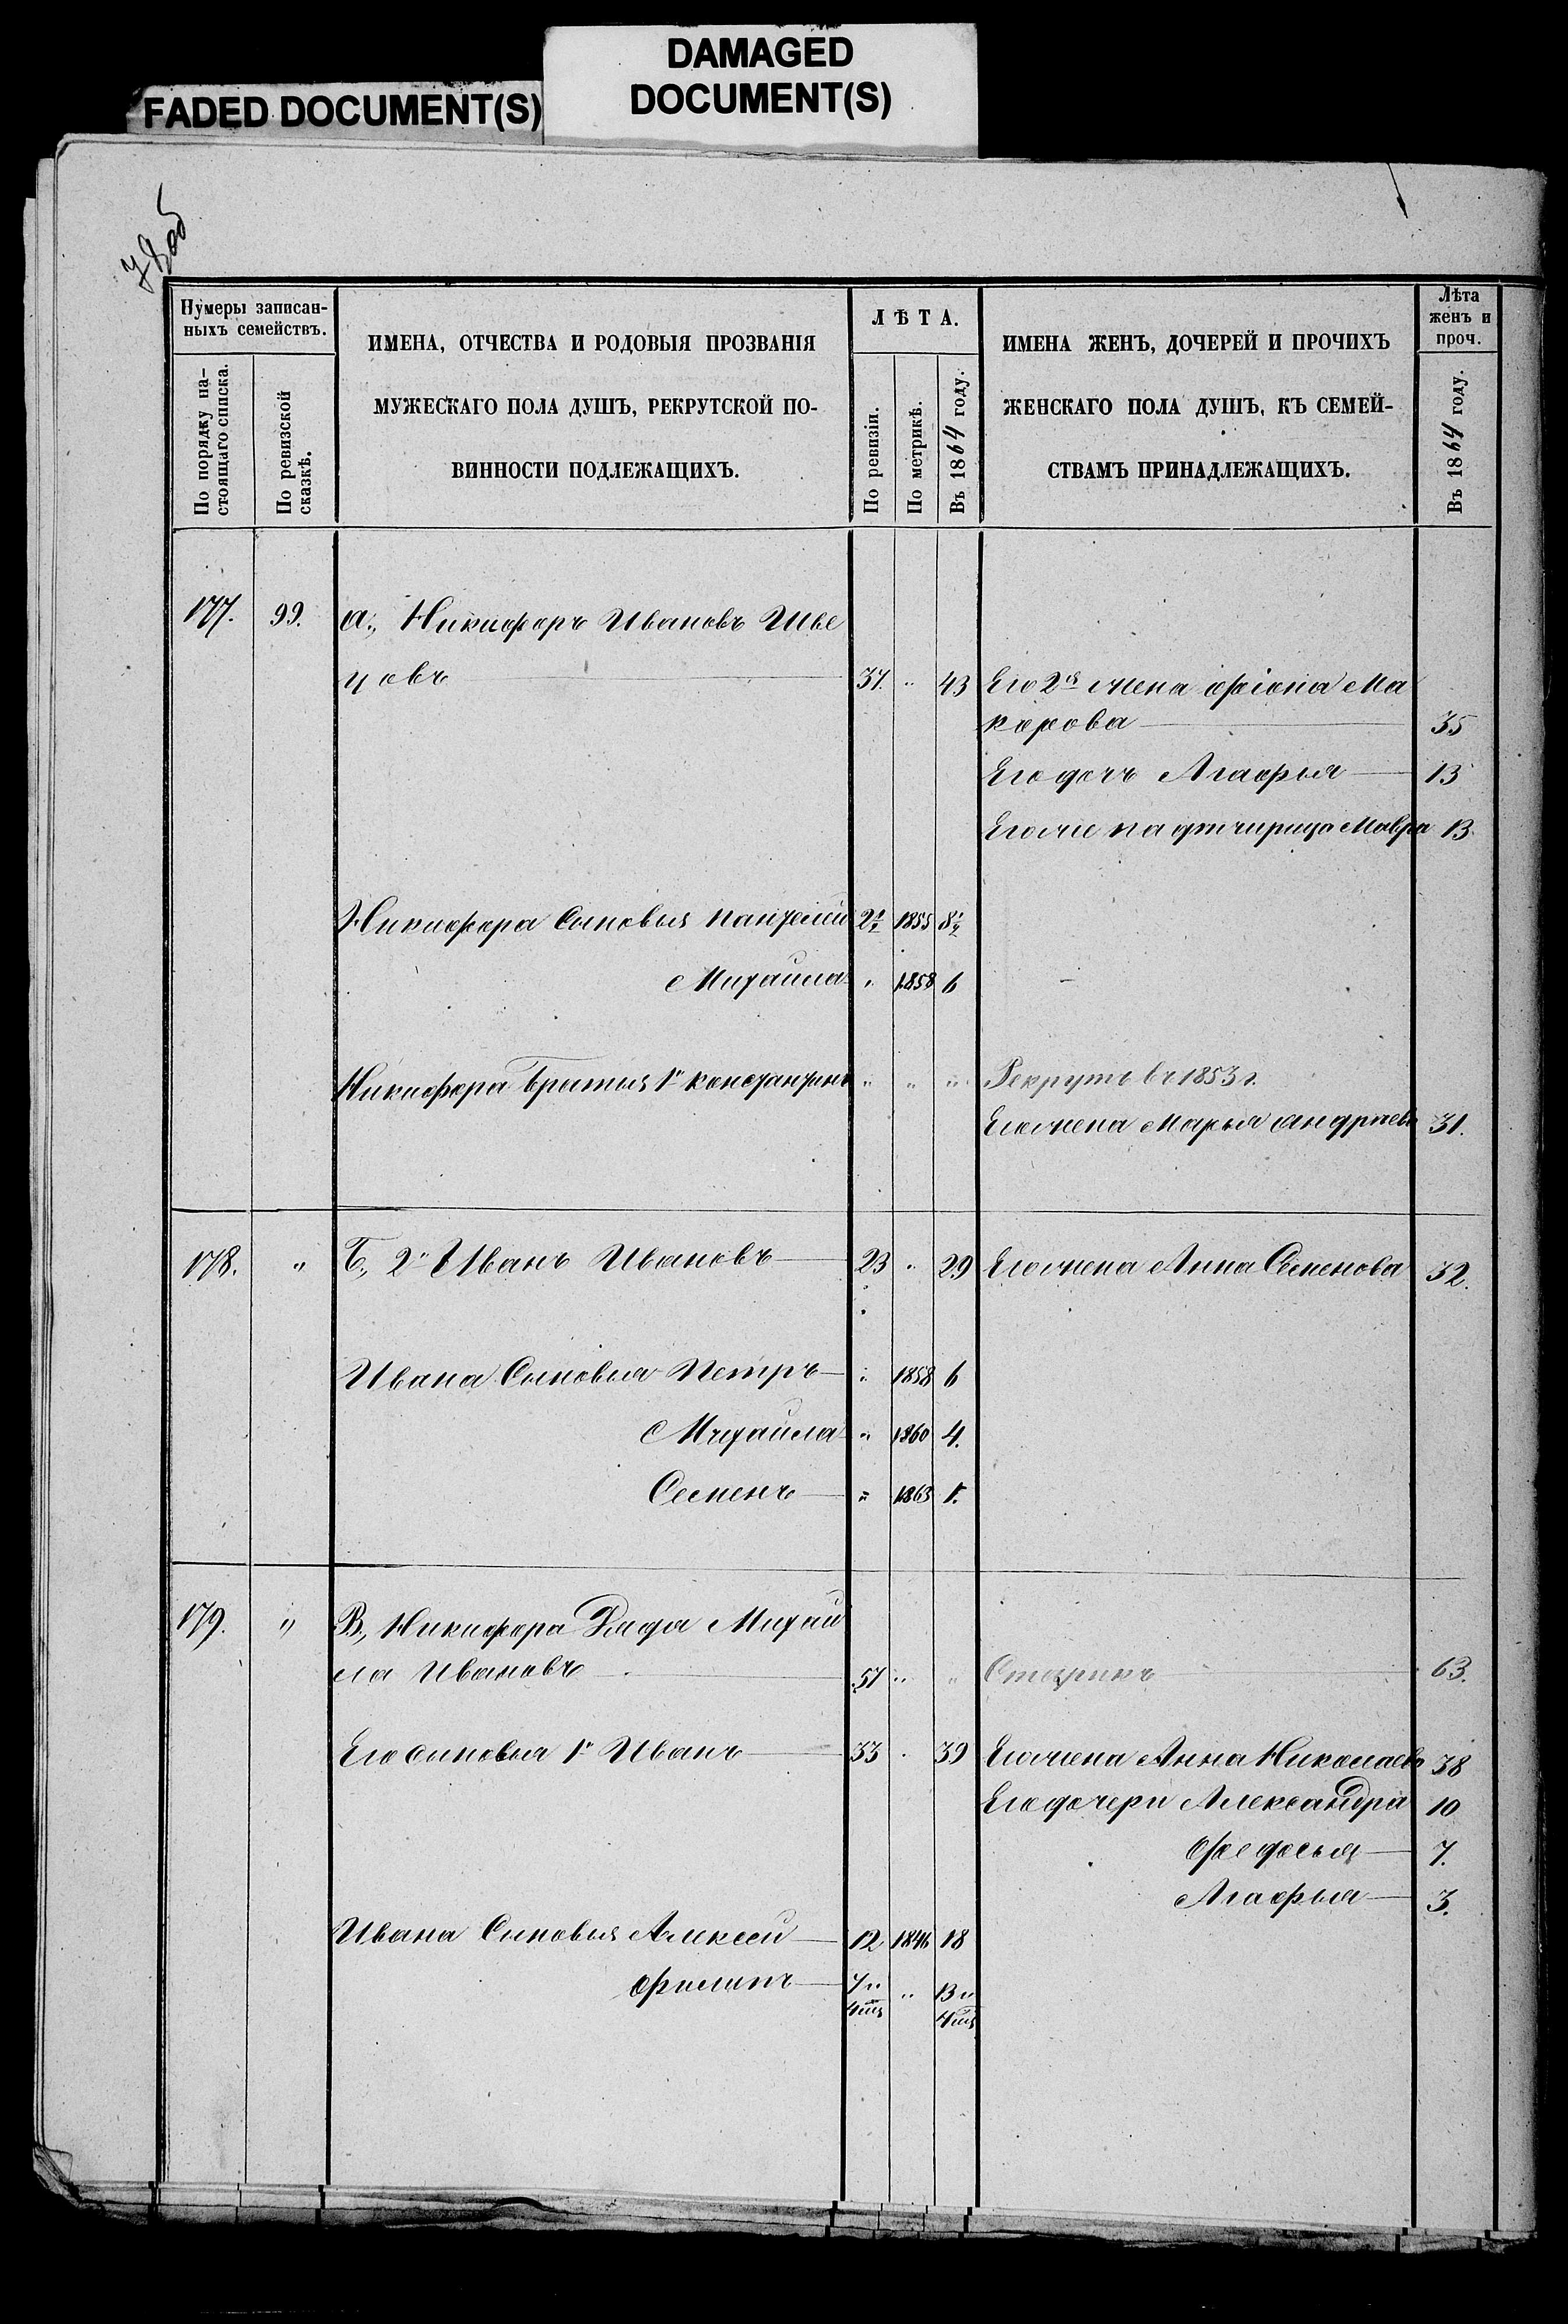 FADED DOCUMENT(S)
DAMAGED
DOCUMENT(S)
78об
Нумеры записан-
ныхъ семействъ.
По порядку на-
стоящаго списка.
По ревизской
сказкѣ.
ИМЕНА, ОТЧЕСТВА И РОДОВЫЯ ПРОЗВАНІЯ
МУЖЕСКАГО ПОЛА ДУШЪ, РЕКРУТСКОЙ ПО-
ВИННОСТИ ПОДЛЕЖАЩИХЪ.
ЛѢТА.
По ревизіи.
По метрикѣ.
Въ 1864 году.
ИМЕНА ЖЕНЪ, ДОЧЕРЕЙ И ПРОЧИХЪ
ЖЕНСКАГО ПОЛА ДУШЪ, КЪ СЕМЕЙ-
СТВАМЪ ПРИНАДЛЕЖАЩИХЪ.
Лѣта
женъ и
проч.
Въ 1864 году.
177. 99. а., Никифоръ Ивановъ Шве
цовъ 37. " 43 Его 2я жена Ма
карова 35
Его дочь Агафья 13
Его же падчирица Мавра 13.
Никифора Сыновья Пантелей 1855
Михаила " 1858 6
Никифора Братья 1й Константинъ " " " Рекрутъ въ 1853 г.
Его жена Марья Андрѣева 31.
178. " Б., 2й Иванъ Ивановъ 23 " 29 Его жена Анна Семенова 32.
Ивана Сыновья Петръ " 1858 6
Михаила " 1860 4.
Семенъ " 1863 1.
179. " В., Никифора Дядя Михаи
ла Ивановъ 57 " " Старикъ 63.
Его сыновья 1й Иванъ 33 " 39 Его жена Анна Николаева 38
Его дочери Александра 10
Федосья 7.
Агафья 3.
Ивана Сыновья Алексей 12 1846 18
Филипъ 7 и " 13 и
4 мц 4 мц